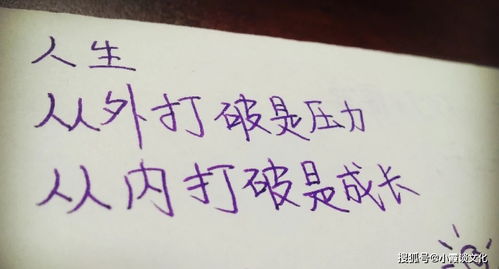 人生
从外打破是压力
从内打破是成长
搜狐号@小霄谈文化